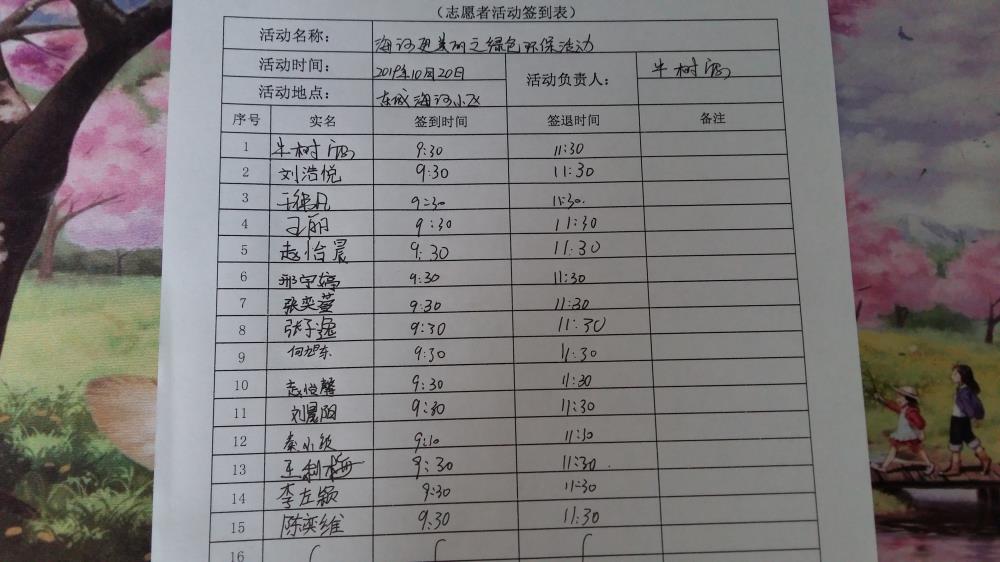 （志愿者活动签到表）
活动名称： 海河更美丽之绿色环保活动
活动时间： 2019年10月20日 活动负责人： 牛树
活动地点： 东城海河小区
序号 实名 签到时间 签退时间 备注
1 牛树 9:30 11:30
2 刘浩悦 9:30 11:30
3 9:30 11:30
4 王丽 9:30 11:30
5 赵怡晨 9:30 11:30
6 9:30 11:30
7 张奕萱 9:30 11:30
8 张子逸 9:30 11:30
9 何旭东 9:30 11:30
10 赵悦馨 9:30 11:30
11 刘晨阳 9:30 11:30
12 秦小 9:10 11:10
13 王利梅 9:30 11:30
14 李左颖 9:30 11:30
15 陈奕维 9:30 11:30
16